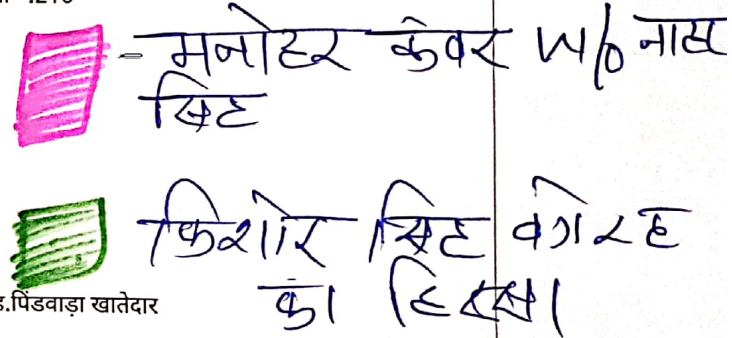 - मनोहर कंवर W/o नाथ
सिंह
किशोर सिंह वगेरह
का हिस्सा
ड.पिंडवाड़ा खातेदार